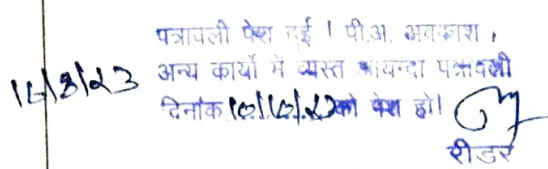 पत्रावली पेश हुई । पी.अ. अवकाश,
अन्य कार्यो में व्यस्त आयन्दा पत्रावली
दिनांक 10/10/23 को पेश हो।
रीडर